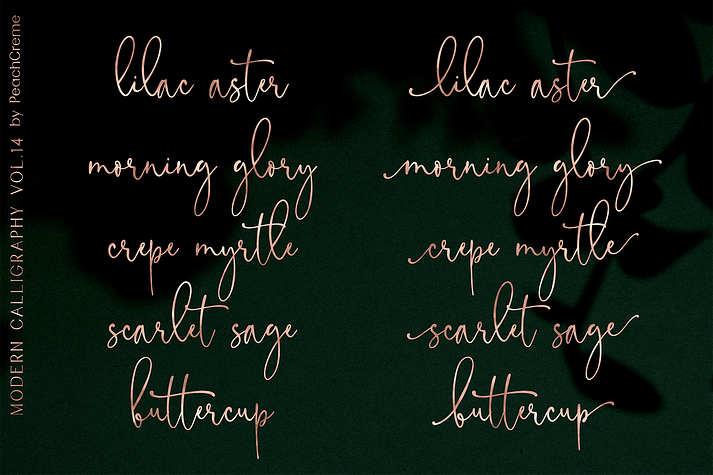 MODERN CALLIGRAPHY VOL.14 by PeachCreme
lilac aster
morning glory
crepe myrtle
scarlet sage
buttercup
lilac aster
morning glory
crepe myrtle
scarlet sage
buttercup